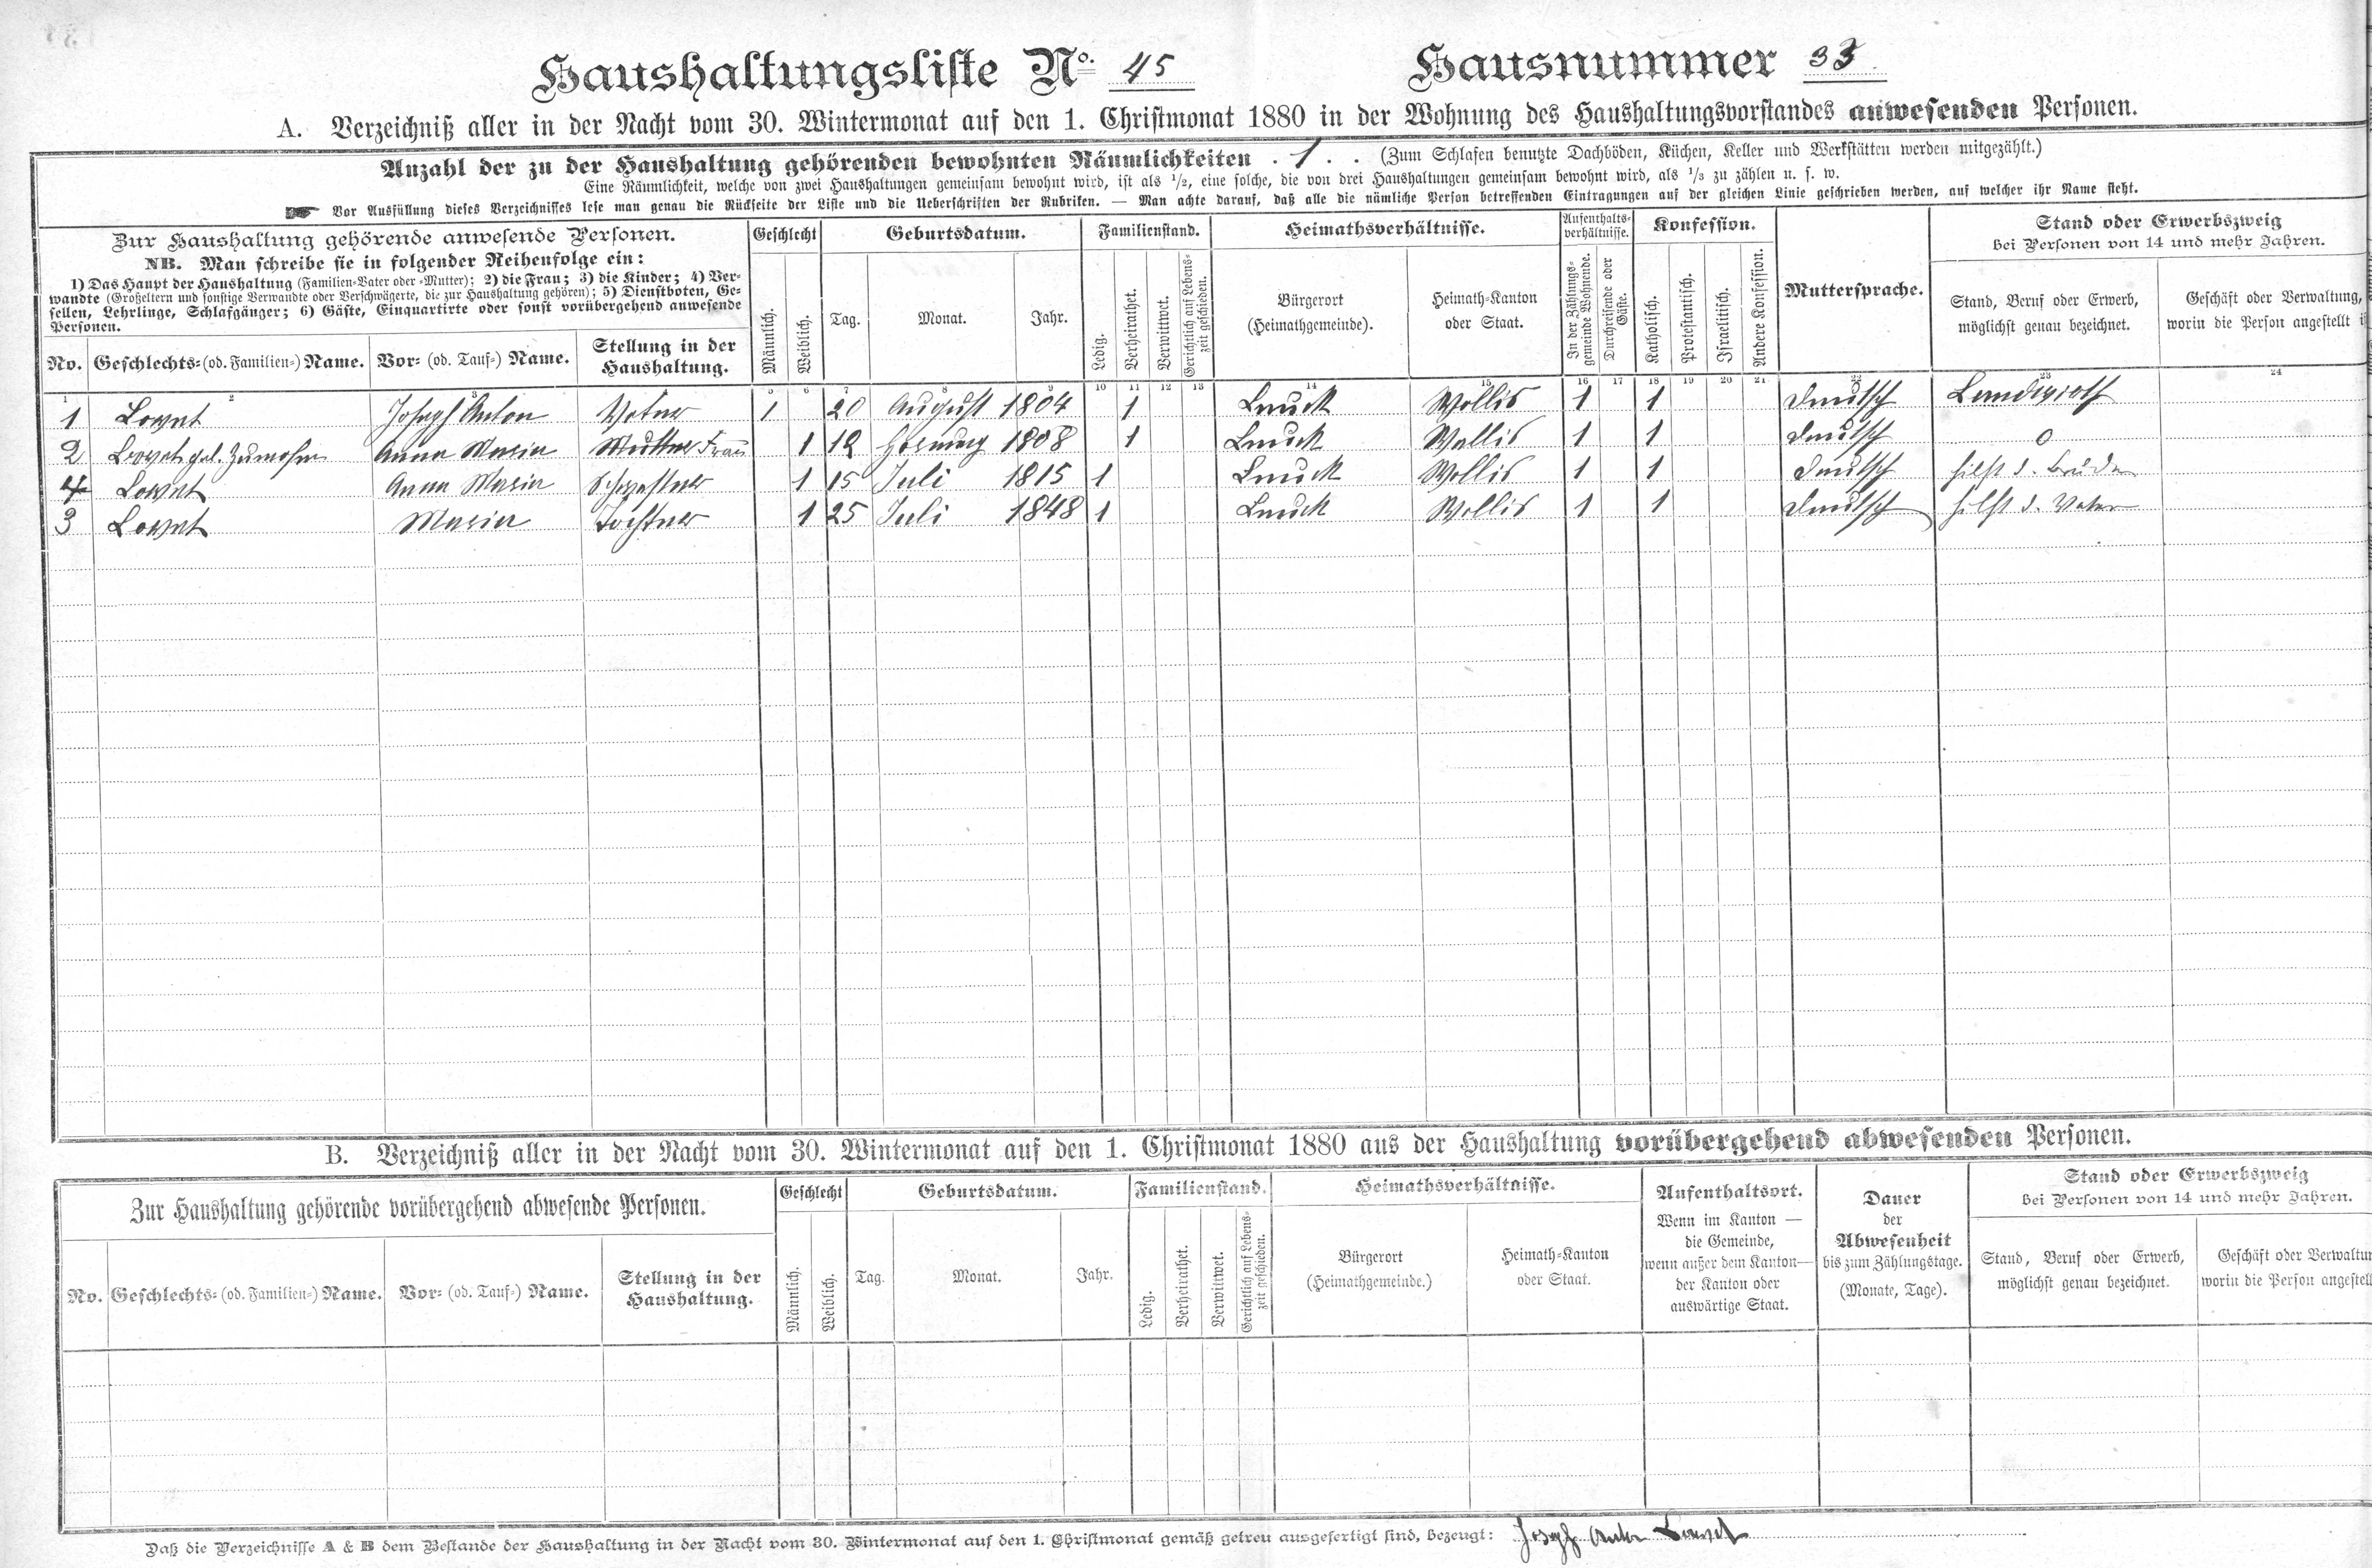 Haushaltungsliste No. 45 Hausnummer 33
A. Verzeichniß aller in der Nacht vom 30. Wintermonat auf den 1. Christmonat 1880 in der Wohnung des Haushaltungsvorstandes anwesenden Personen.
Anzahl der zu der Haushaltung gehörenden bewohnten Räumlichkeiten . 1 . . (Zum Schlafen benutzte Dachböden, Küchen, Keller und Werkstätten werden mitgezählt.)
Eine Räumlichkeit, welche von zwei Haushaltungen gemeinsam bewohnt wird, ist als 1/2, eine solche, die von drei Haushaltungen gemeinsam bewohnt wird, als 1/3 zu zählen u. s. w.
Vor Ausfüllung dieses Verzeichnisses lese man genau die Rückseite der Liste und die Ueberschriften der Rubriken. — Man achte darauf, daß alle die nämliche Person betreffenden Eintragungen auf der gleichen Linie geschrieben werden, auf welcher ihr Name steht.
Zur Haushaltung gehörende anwesende Personen.
NB. Man schreibe sie in folgender Reihenfolge ein:
1) Das Haupt der Haushaltung (Familien-Vater oder -Mutter); 2) die Frau; 3) die Kinder; 4) Ver-
wandte (Großeltern und sonstige Verwandte oder Verschwägerte, die zur Haushaltung gehören); 5) Dienstboten, Ge-
sellen, Lehrlinge, Schlafgänger; 6) Gäste, Einquartirte oder sonst vorübergehend anwesende
Personen.
No. Geschlechts- (od. Familien-) Name. Vor- (od. Tauf-) Name. Stellung in der
Haushaltung.
Geschlecht
Männlich. Weiblich.
Geburtsdatum.
Tag. Monat. Jahr.
Familienstand.
Ledig. Verheirathet. Verwittwet. Gerichtlich auf Lebens-
zeit geschieden.
Heimathsverhältnisse.
Bürgerort
(Heimathgemeinde).
Heimath-Kanton
oder Staat.
Aufenthalts-
verhältnisse.
In der Zählungs-
gemeinde Wohnende.
Durchreisende oder
Gäste.
Konfession.
Katholisch. Protestantisch. Israelitisch. Andere Konfession.
Muttersprache.
Stand oder Erwerbszweig
bei Personen von 14 und mehr Jahren.
Stand, Beruf oder Erwerb,
möglichst genau bezeichnet.
Geschäft oder Verwaltung,
worin die Person angestellt
1 2 3 5 6 7 8 9 10 11 12 13 14 15 16 17 18 19 20 21 22 23 24
1 Joseph Anton Vater 1 20 August 1804 1 Leuck Wallis 1 1 deutsch Landwirth
2 Anna Maria Mutter Frau 1 12 Hornung 1808 1 Leuck Wallis 1 1 deutsch 0
4 Anna Maria Schwester 1 15 Juli 1815 1 Leuck Wallis 1 1 deutsch hilft d. Bruder
3 Maria Tochter 1 25 Juli 1848 1 Leuck Wallis 1 1 deutsch hilft d. Vater
B. Verzeichniß aller in der Nacht vom 30. Wintermonat auf den 1. Christmonat 1880 aus der Haushaltung vorübergehend abwesenden Personen.
Zur Haushaltung gehörende vorübergehend abwesende Personen.
No. Geschlechts- (od. Familien-) Name. Vor- (od. Tauf-) Name. Stellung in der
Haushaltung.
Geschlecht
Männlich. Weiblich.
Geburtsdatum.
Tag. Monat. Jahr.
Familienstand.
Ledig. Verheirathet. Verwittwet. Gerichtlich auf Lebens-
zeit geschieden.
Heimathsverhältnisse.
Bürgerort
(Heimathgemeinde.)
Heimath-Kanton
oder Staat.
Aufenthaltsort.
Wenn im Kanton —
die Gemeinde,
wenn außer dem Kanton—
der Kanton oder
auswärtige Staat.
Dauer
der
Abwesenheit
bis zum Zählungstage.
(Monate, Tage).
Stand oder Erwerbszweig
bei Personen von 14 und mehr Jahren.
Stand, Beruf oder Erwerb,
möglichst genau bezeichnet.
Geschäft oder Verwaltun
worin die Person angestell
Daß die Verzeichnisse A & B dem Bestande der Haushaltung in der Nacht vom 30. Wintermonat auf den 1. Christmonat gemäß getreu ausgefertigt sind, bezeugt: Joseph Anton